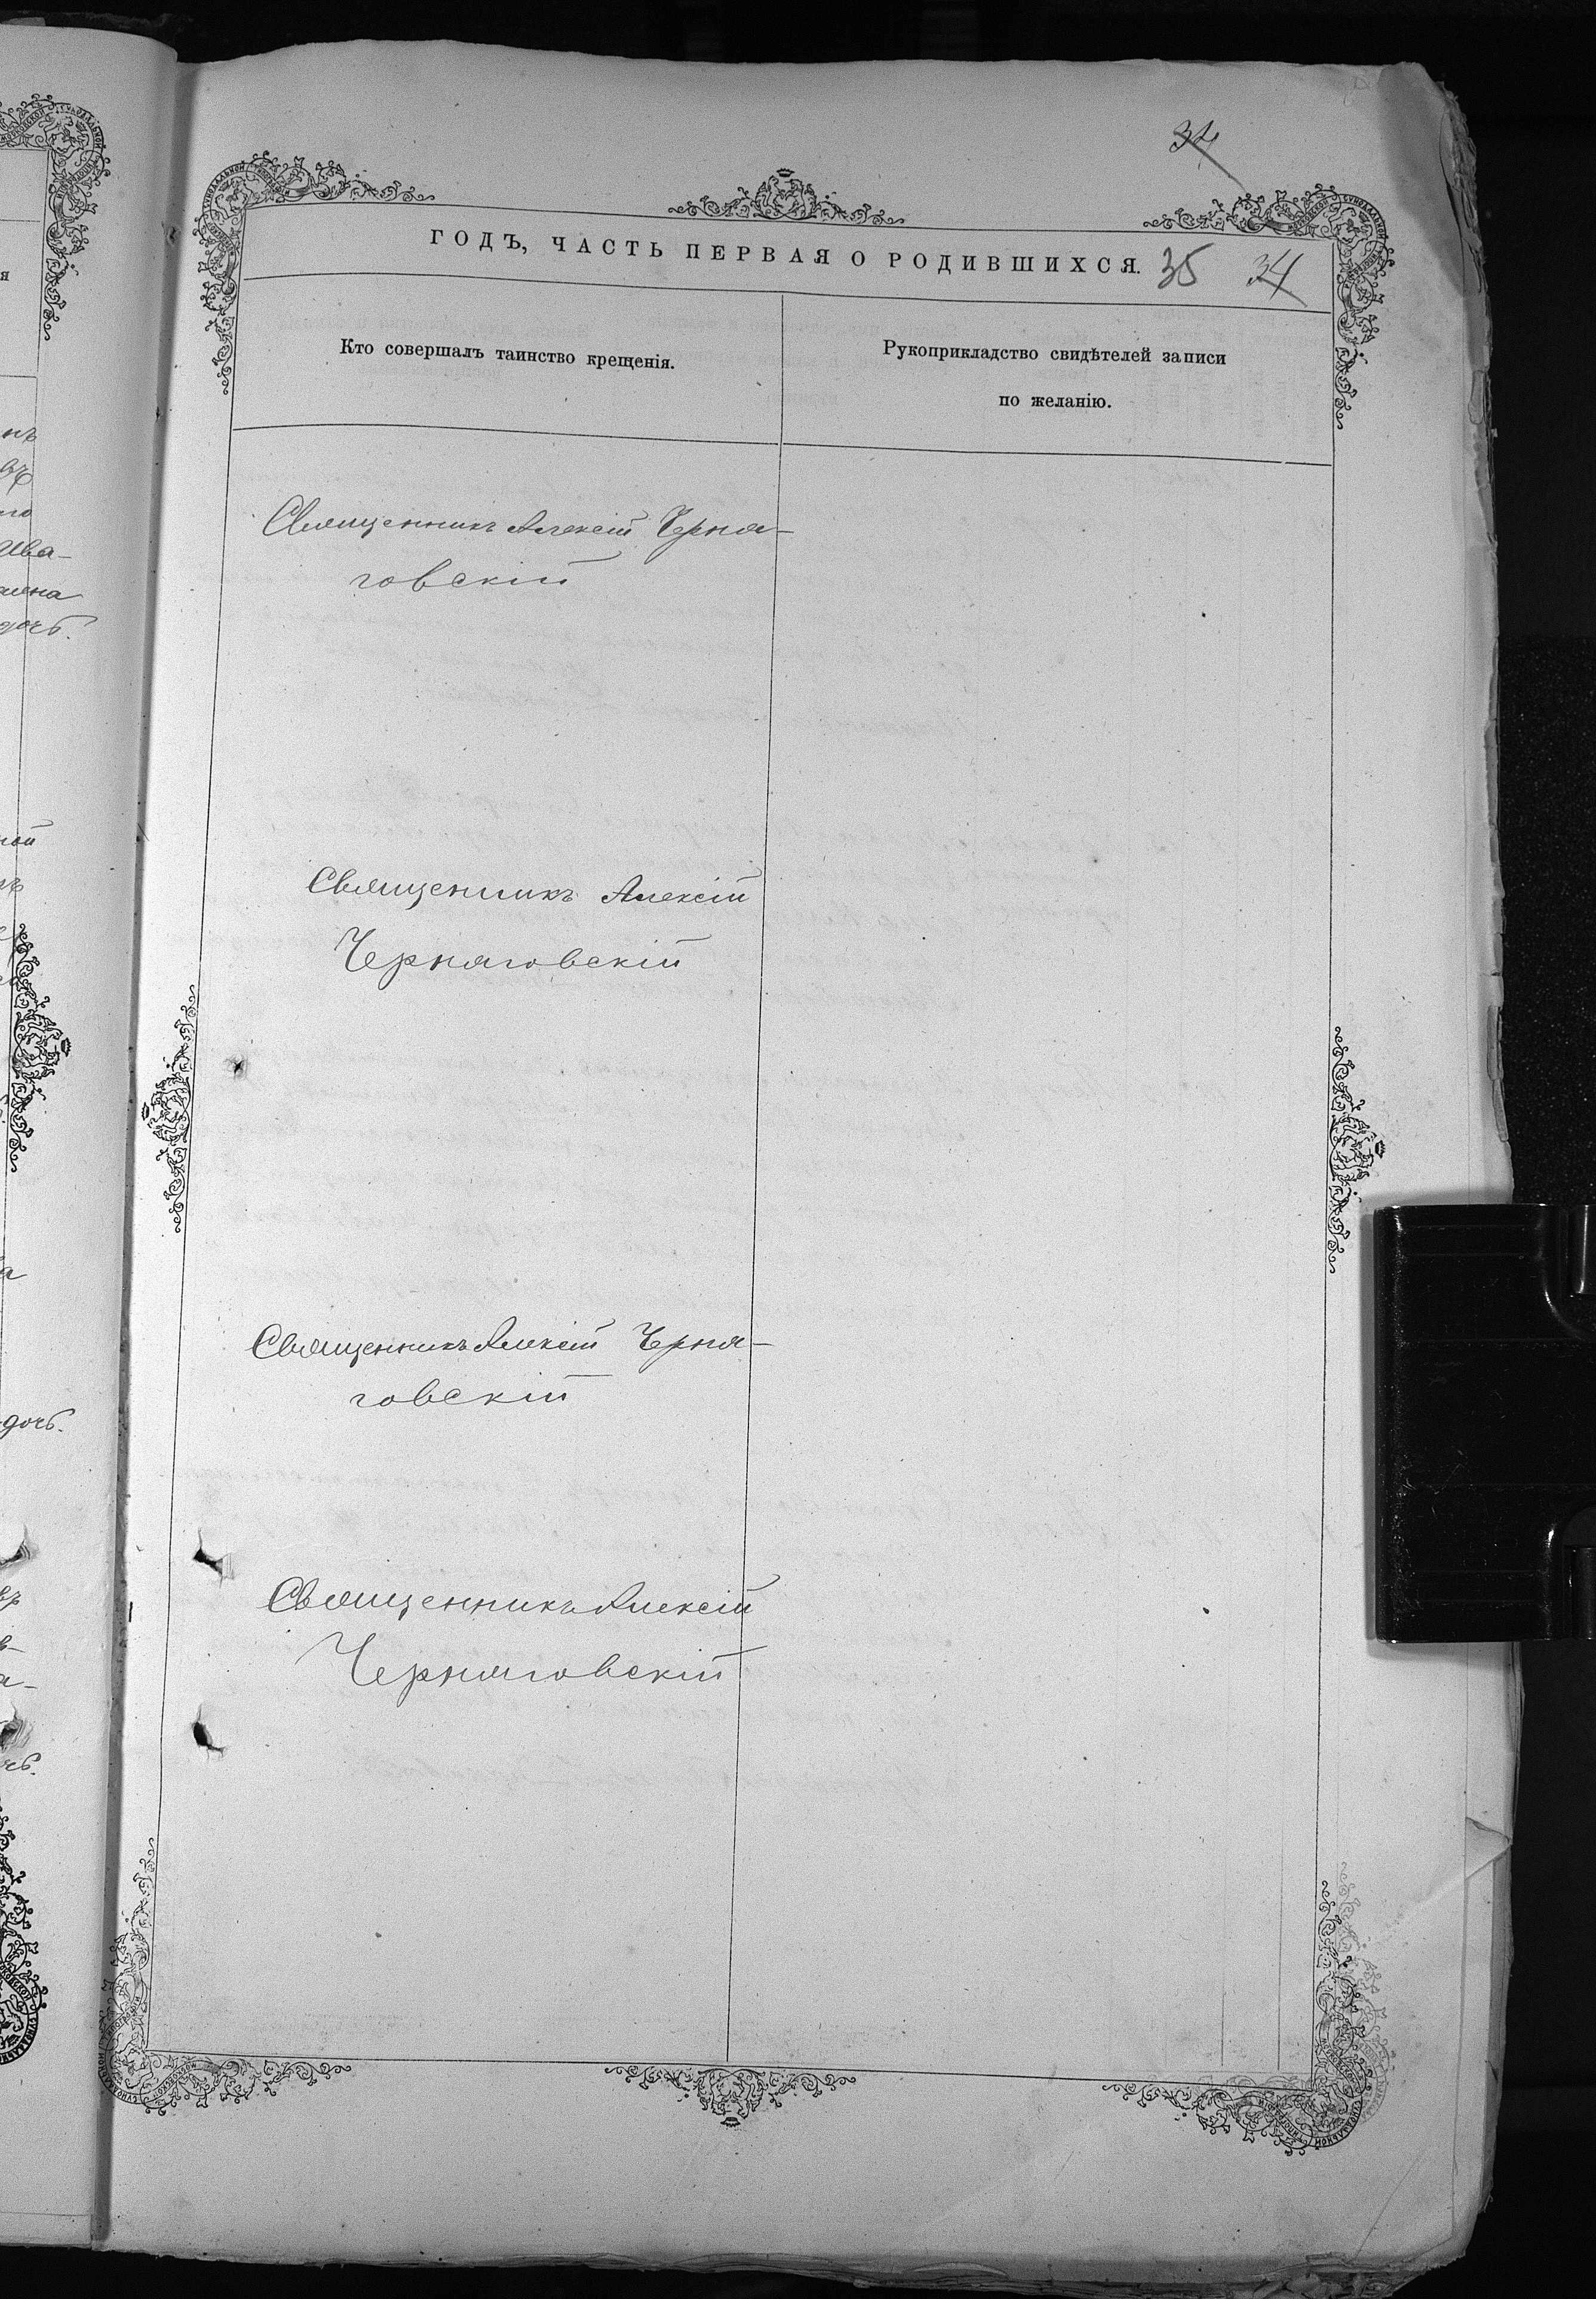 34
ГОДЪ, ЧАСТЬ ПЕРВАЯ О РОДИВШИХСЯ. 35 34
Кто совершалъ таинство крещенія.
Рукоприкладство свидѣтелей записи
по желанію.
Священникъ Алексій Черня-
говскій
Священникъ Алексій
Черняговскій
Священникъ Алексій Черня-
говскій
Священникъ Алексій
Черняговскій